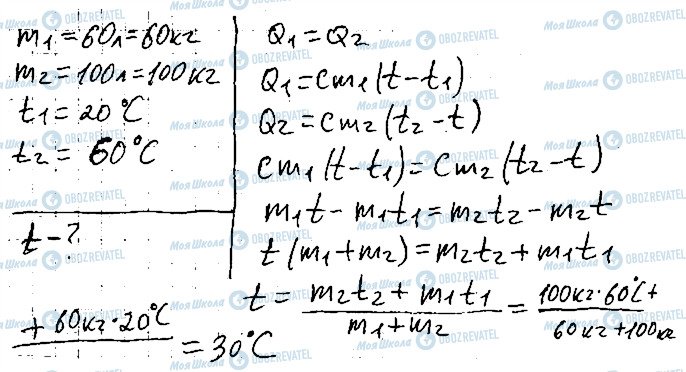 m₁ = 60л = 60кг
m₂ = 100л = 100кг
t₁ = 20°C
t₂ = 60°C
t - ?
Q₁ = Q₂
Q₁ = cm₁(t - t₁)
Q₂ = cm₂(t₂ - t)
cm₁(t - t₁) = cm₂(t₂ - t)
m₁t - m₁t₁ = m₂t₂ - m₂t
t(m₁ + m₂) = m₂t₂ + m₁t₁
t = (m₂t₂ + m₁t₁)/(m₁ + m₂) = 100кг·60°C + / 60кг + 100кг
+ 60кг·20°C = 30°C
МояШкола OBOZREVATEL